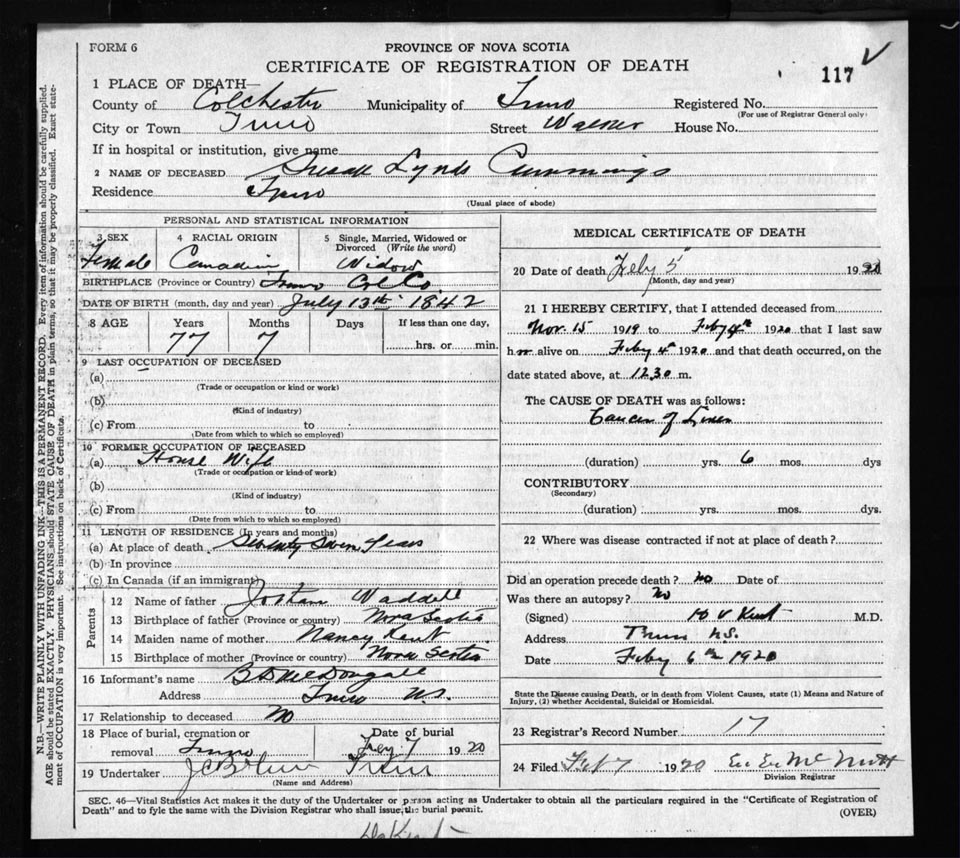 FORM 6
PROVINCE OF NOVA SCOTIA
CERTIFICATE OF REGISTRATION OF DEATH
117
1 PLACE OF DEATH—
County of Colchester Municipality of Truro Registered No.
(For use of Registrar General only)
City or Town Truro Street Walker House No.
If in hospital or institution, give name
2 NAME OF DECEASED Lynds Cummings
Residence Truro
(Usual place of abode)
PERSONAL AND STATISTICAL INFORMATION
3 SEX 4 RACIAL ORIGIN 5 Single, Married, Widowed or Divorced (Write the word)
Female Canadian Widow
BIRTHPLACE (Province or Country) Truro Col Co.
DATE OF BIRTH (month, day and year) July 13th 1842
8 AGE Years Months Days If less than one day,
77 7 hrs. or min.
9 LAST OCCUPATION OF DECEASED
(a)
(Trade or occupation or kind or work)
(b)
(Kind of industry)
(c) From to
(Date from which to which so employed)
10 FORMER OCCUPATION OF DECEASED
(a) House Wife
(Trade or occupation or kind of work)
(b)
(Kind of industry)
(c) From to
(Date from which to which so employed)
11 LENGTH OF RESIDENCE (In years and months)
(a) At place of death Seventy Seven Years
(b) In province
(c) In Canada (if an immigrant)
Parents
12 Name of father Waddell
13 Birthplace of father (Province or country) Nova Scotia
14 Maiden name of mother Nancy Kent
15 Birthplace of mother (Province or country) Nova Scotia
16 Informant's name B D McDougall
Address Truro N.S.
17 Relationship to deceased No
18 Place of burial, cremation or removal Truro
Date of burial Feby 7 1920
19 Undertaker Truro
(Name and Address)
MEDICAL CERTIFICATE OF DEATH
20 Date of death Feby 5 1920
(Month, day and year)
21 I HEREBY CERTIFY, that I attended deceased from
Nov. 15 1919 to Feby 4th 1920 that I last saw
her alive on Feby 4th 1920 and that death occurred, on the
date stated above, at 12.30 m.
The CAUSE OF DEATH was as follows:
Cancer of Liver
(duration) yrs. 6 mos. dys
CONTRIBUTORY
(Secondary)
(duration) yrs. mos. dys.
22 Where was disease contracted if not at place of death?
Did an operation precede death? no Date of
Was there an autopsy? No
(Signed) H V Kent M.D.
Address Truro N.S.
Date Feby 6th 1920
State the Disease causing Death, or in death from Violent Causes, state (1) Means and Nature of
Injury, (2) whether Accidental, Suicidal or Homicidal.
23 Registrar's Record Number 17
24 Filed Feb 7 1920 McNutt
Division Registrar
SEC. 46—Vital Statistics Act makes it the duty of the Undertaker or person acting as Undertaker to obtain all the particulars required in the "Certificate of Registration of
Death" and to fyle the same with the Division Registrar who shall issue the burial permit.
(OVER)
N.B.—WRITE PLAINLY WITH UNFADING INK—THIS IS A PERMANENT RECORD. Every item of information should be carefully supplied.
AGE should be stated EXACTLY. PHYSICIANS should STATE CAUSE OF DEATH in plain terms, so that it may be properly classified. Exact state-
ment of OCCUPATION is very important. See instructions on back of Certificate.